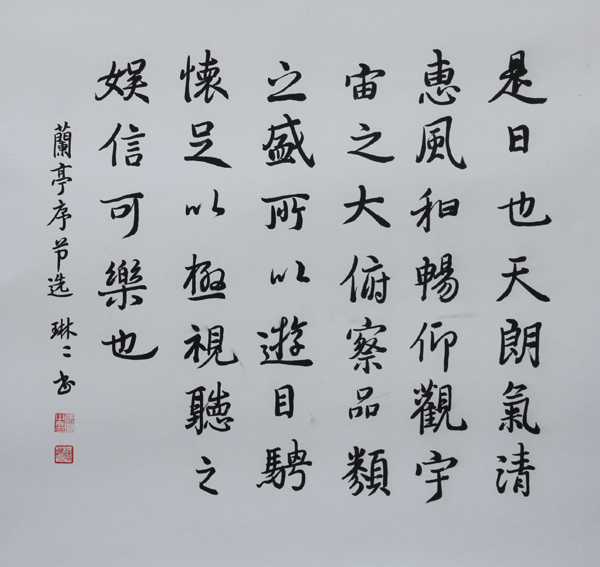 是日也天朗氣清
惠風和暢仰觀宇
宙之大俯察品類
之盛所以遊目騁
懷足以極視聽之
娛信可樂也
蘭亭序节选 琳二书